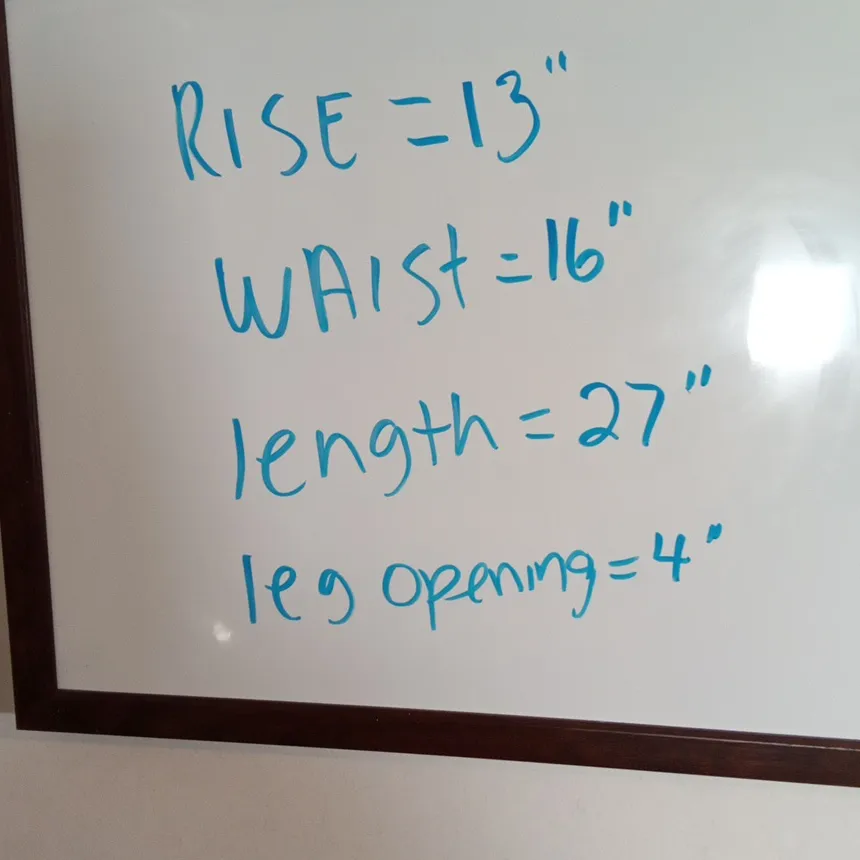 RISE = 13"
WAISt = 16"
length = 27"
leg opening = 4"